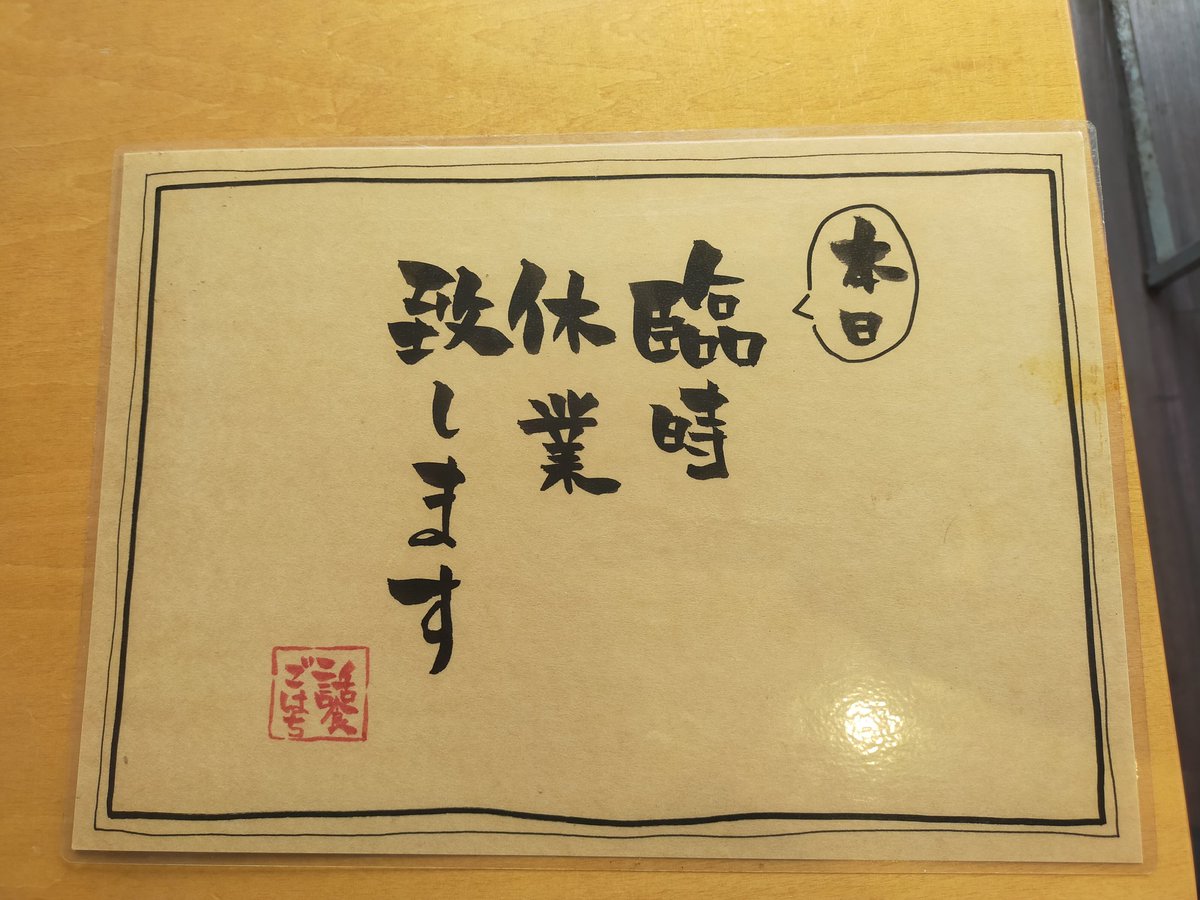 本日
臨時
休業
致します
ごはち